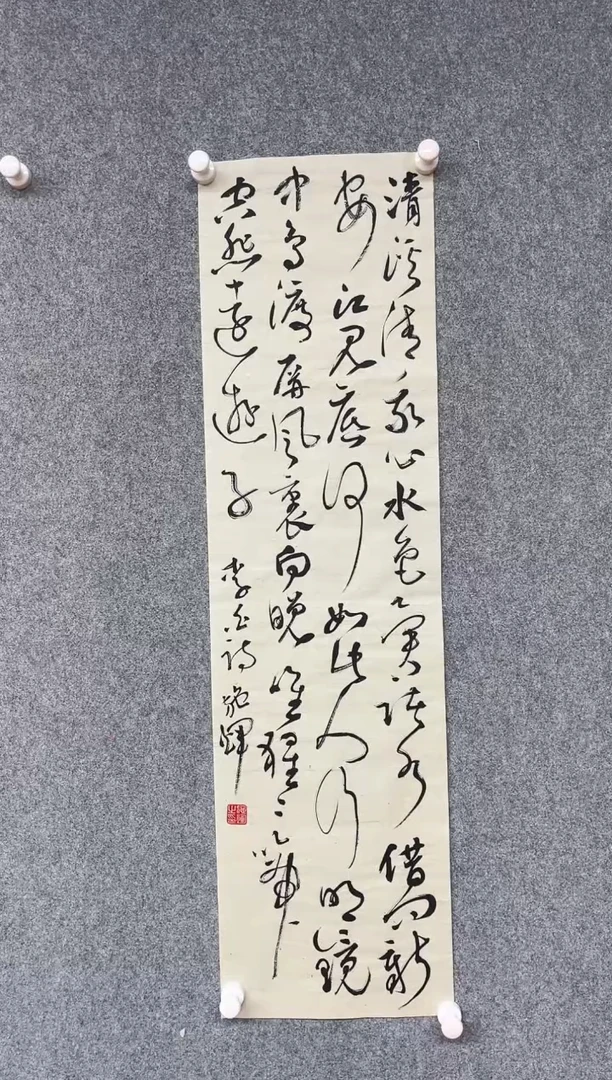 清溪清我心水色異諸水借問新
安江見底何如此人行明鏡
中鳥渡屏風裏向晚唯猩〻啼
空悲遠遊子 李白詩 施輝